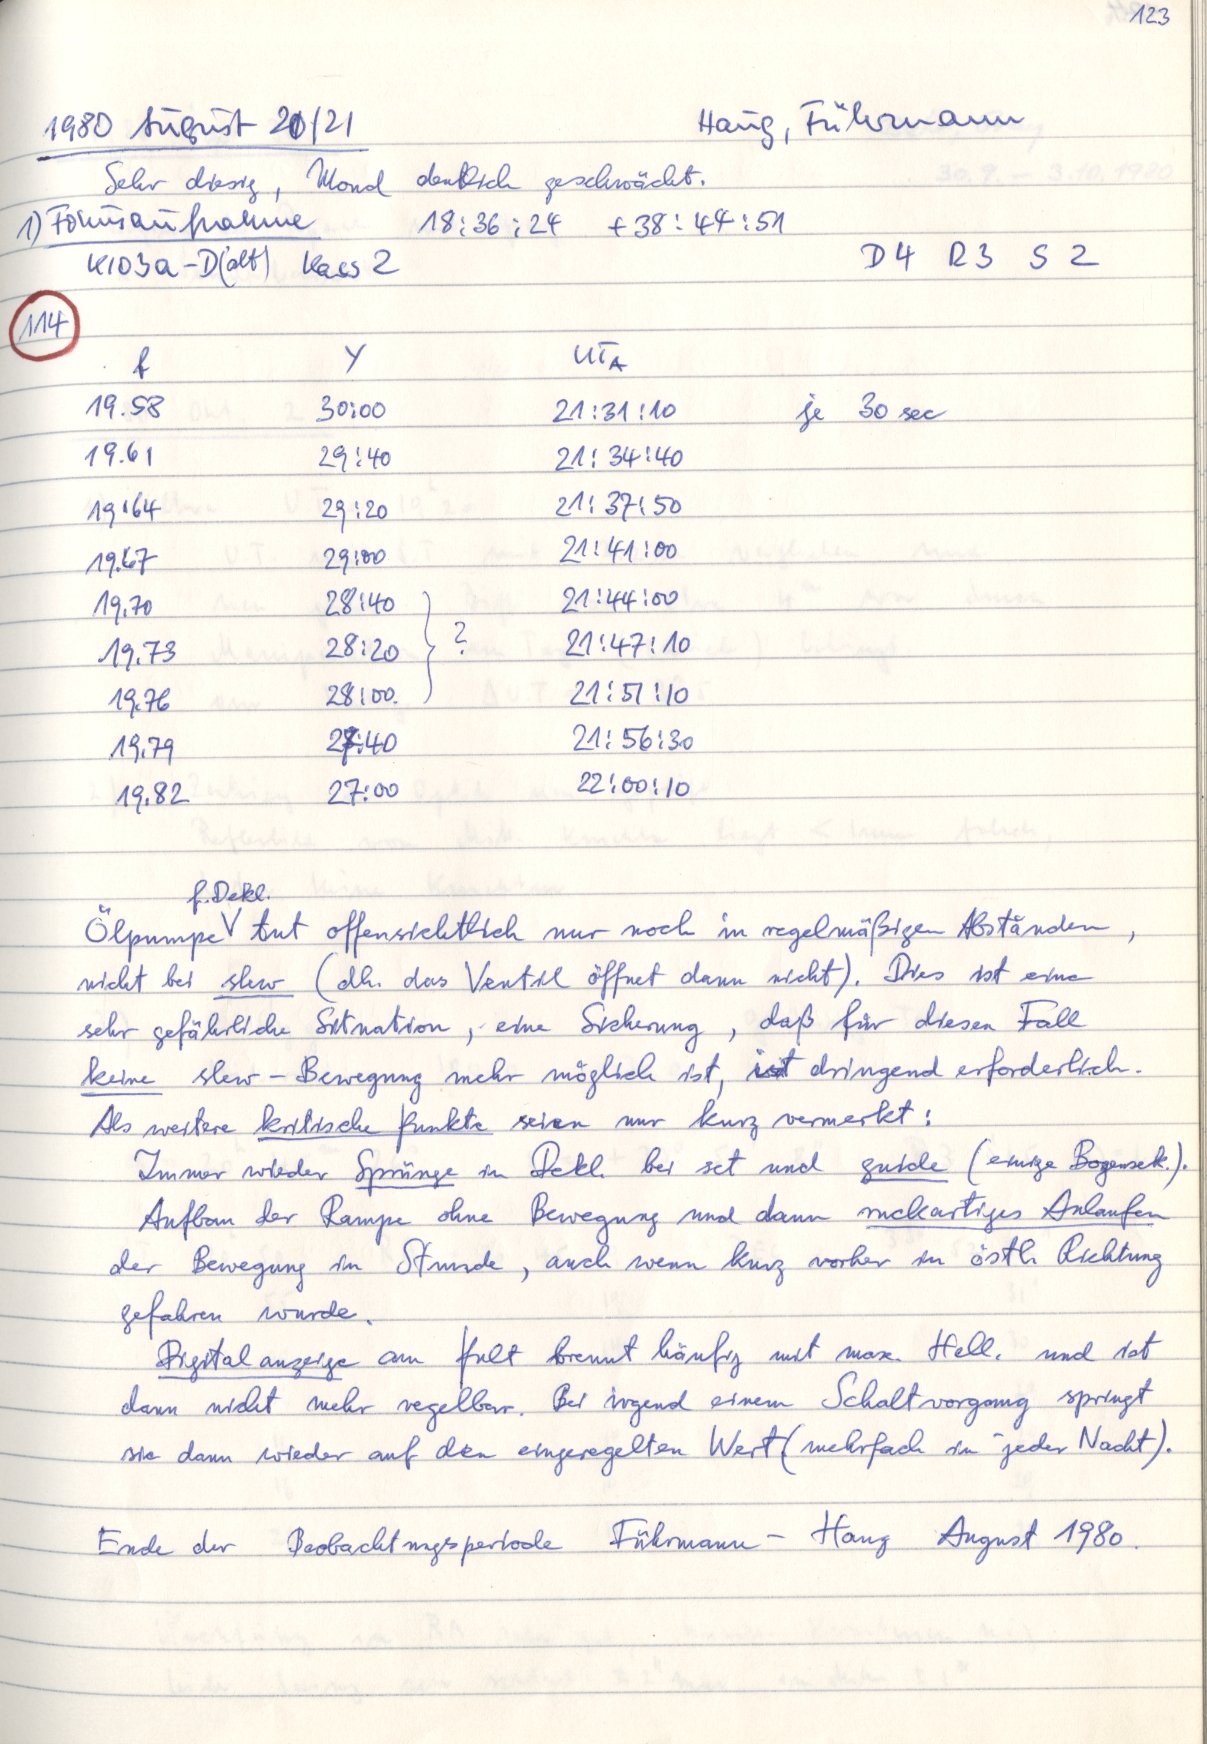 123
1980 August 20/21 Haug, Führmann
Sehr diesig, Mond deutlich geschwächt.
1) Fokusaufnahme 18:36:24 +38:44:51
K103a-D(alt) Kass 2 D4 R3 S2
114
f Y UT_A
19.58 30:00 21:31:10 je 30 sec
19.61 29:40 21:34:40
19.64 29:20 21:37:50
19.67 29:00 21:41:00
19.70 28:40 21:44:00
19.73 28:20 ? 21:47:10
19.76 28:00 21:51:10
19.79 27:40 21:56:30
19.82 27:00 22:00:10
f. Dekl.
Ölpumpe V tut offensichtlich nur noch in regelmäßigen Abständen,
nicht bei slew (dh. das Ventil öffnet dann nicht). Dies ist eine
sehr gefährliche Situation, eine Sicherung, daß für diesen Fall
keine slew-Bewegung mehr möglich ist, ist dringend erforderlich.
Als weitere kritische Punkte seien nur kurz vermerkt:
Immer wieder Sprünge in Dekl. bei set und guide (einige Bogensek.).
Aufbau der Rampe ohne Bewegung und dann ruckartiges Anlaufen
der Bewegung in Stunde, auch wenn kurz vorher in östl. Richtung
gefahren wurde.
Digitalanzeige am Pult brennt häufig mit max. Hell. und ist
dann nicht mehr regelbar. Bei irgend einem Schaltvorgang springt
sie dann wieder auf den eingeregelten Wert (mehrfach in jeder Nacht).
Ende der Beobachtungsperiode Führmann - Haug August 1980.